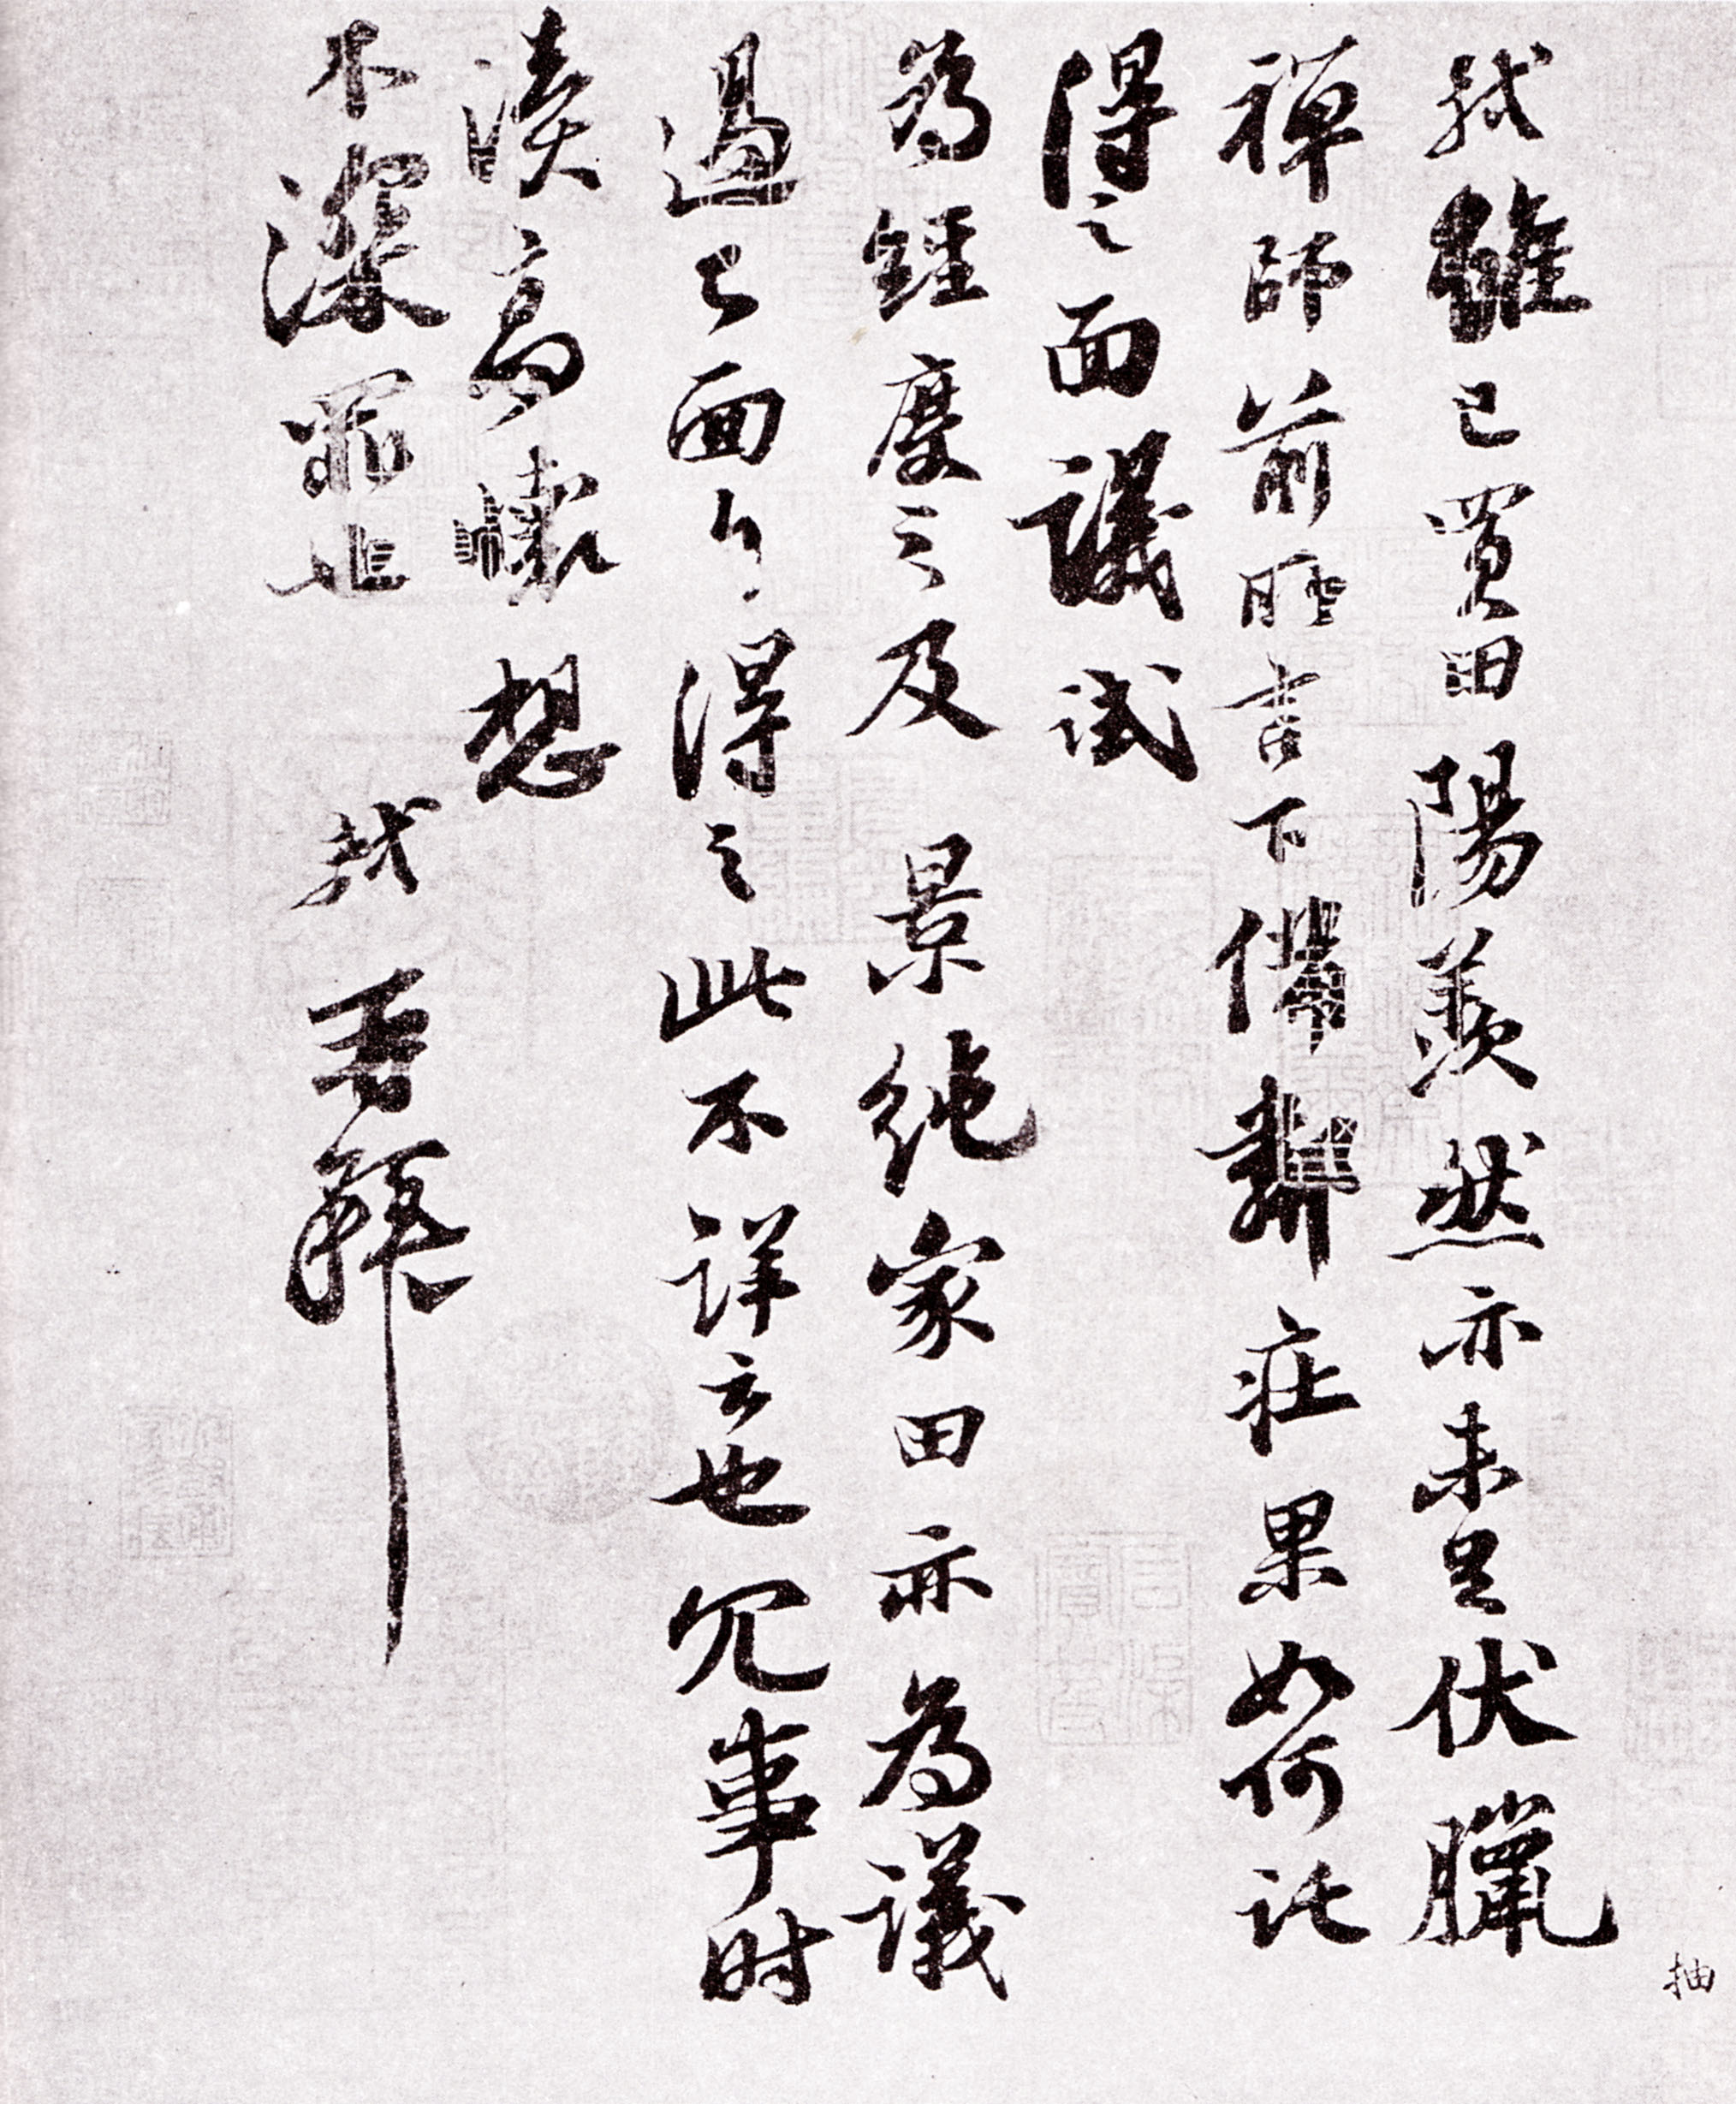 軾雖已買田陽羨然亦未足伏臘
禪師前所言下備鄰莊果如何託
得之面議試
為經度之及景純家田亦為議
過已面白得之此不詳云也冗事時
瀆高懷想
不深罪也軾再拜
抽